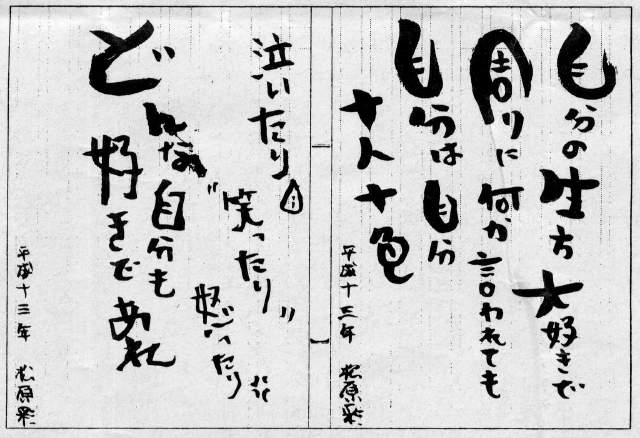 自分の生方大好きで
周りに何か言われても
自分は自分
十人十色
平成十三年 松原彩
泣いたり
笑ったり
怒ったり
どんな自分も
好きであれ
平成十三年 松原彩